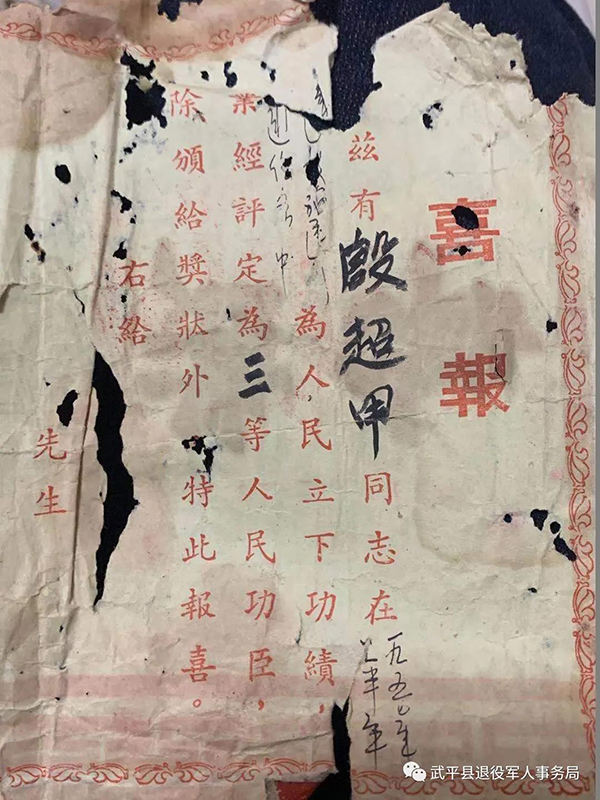 喜報
茲有殷超甲同志在一九五〇年上半年
為人民立下功績，
業經評定為三等人民功臣，
除頒給獎狀外特此報喜。
右給
先生
武平县退役军人事务局